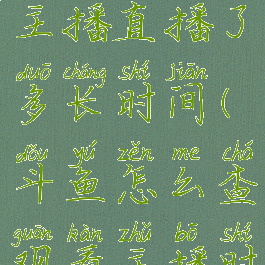 主播直播了
duō cháng shí jiān
多长时间(
dòu yú zěn me chá
斗鱼怎么查
guān kàn zhǔ bō shí
观看主播时